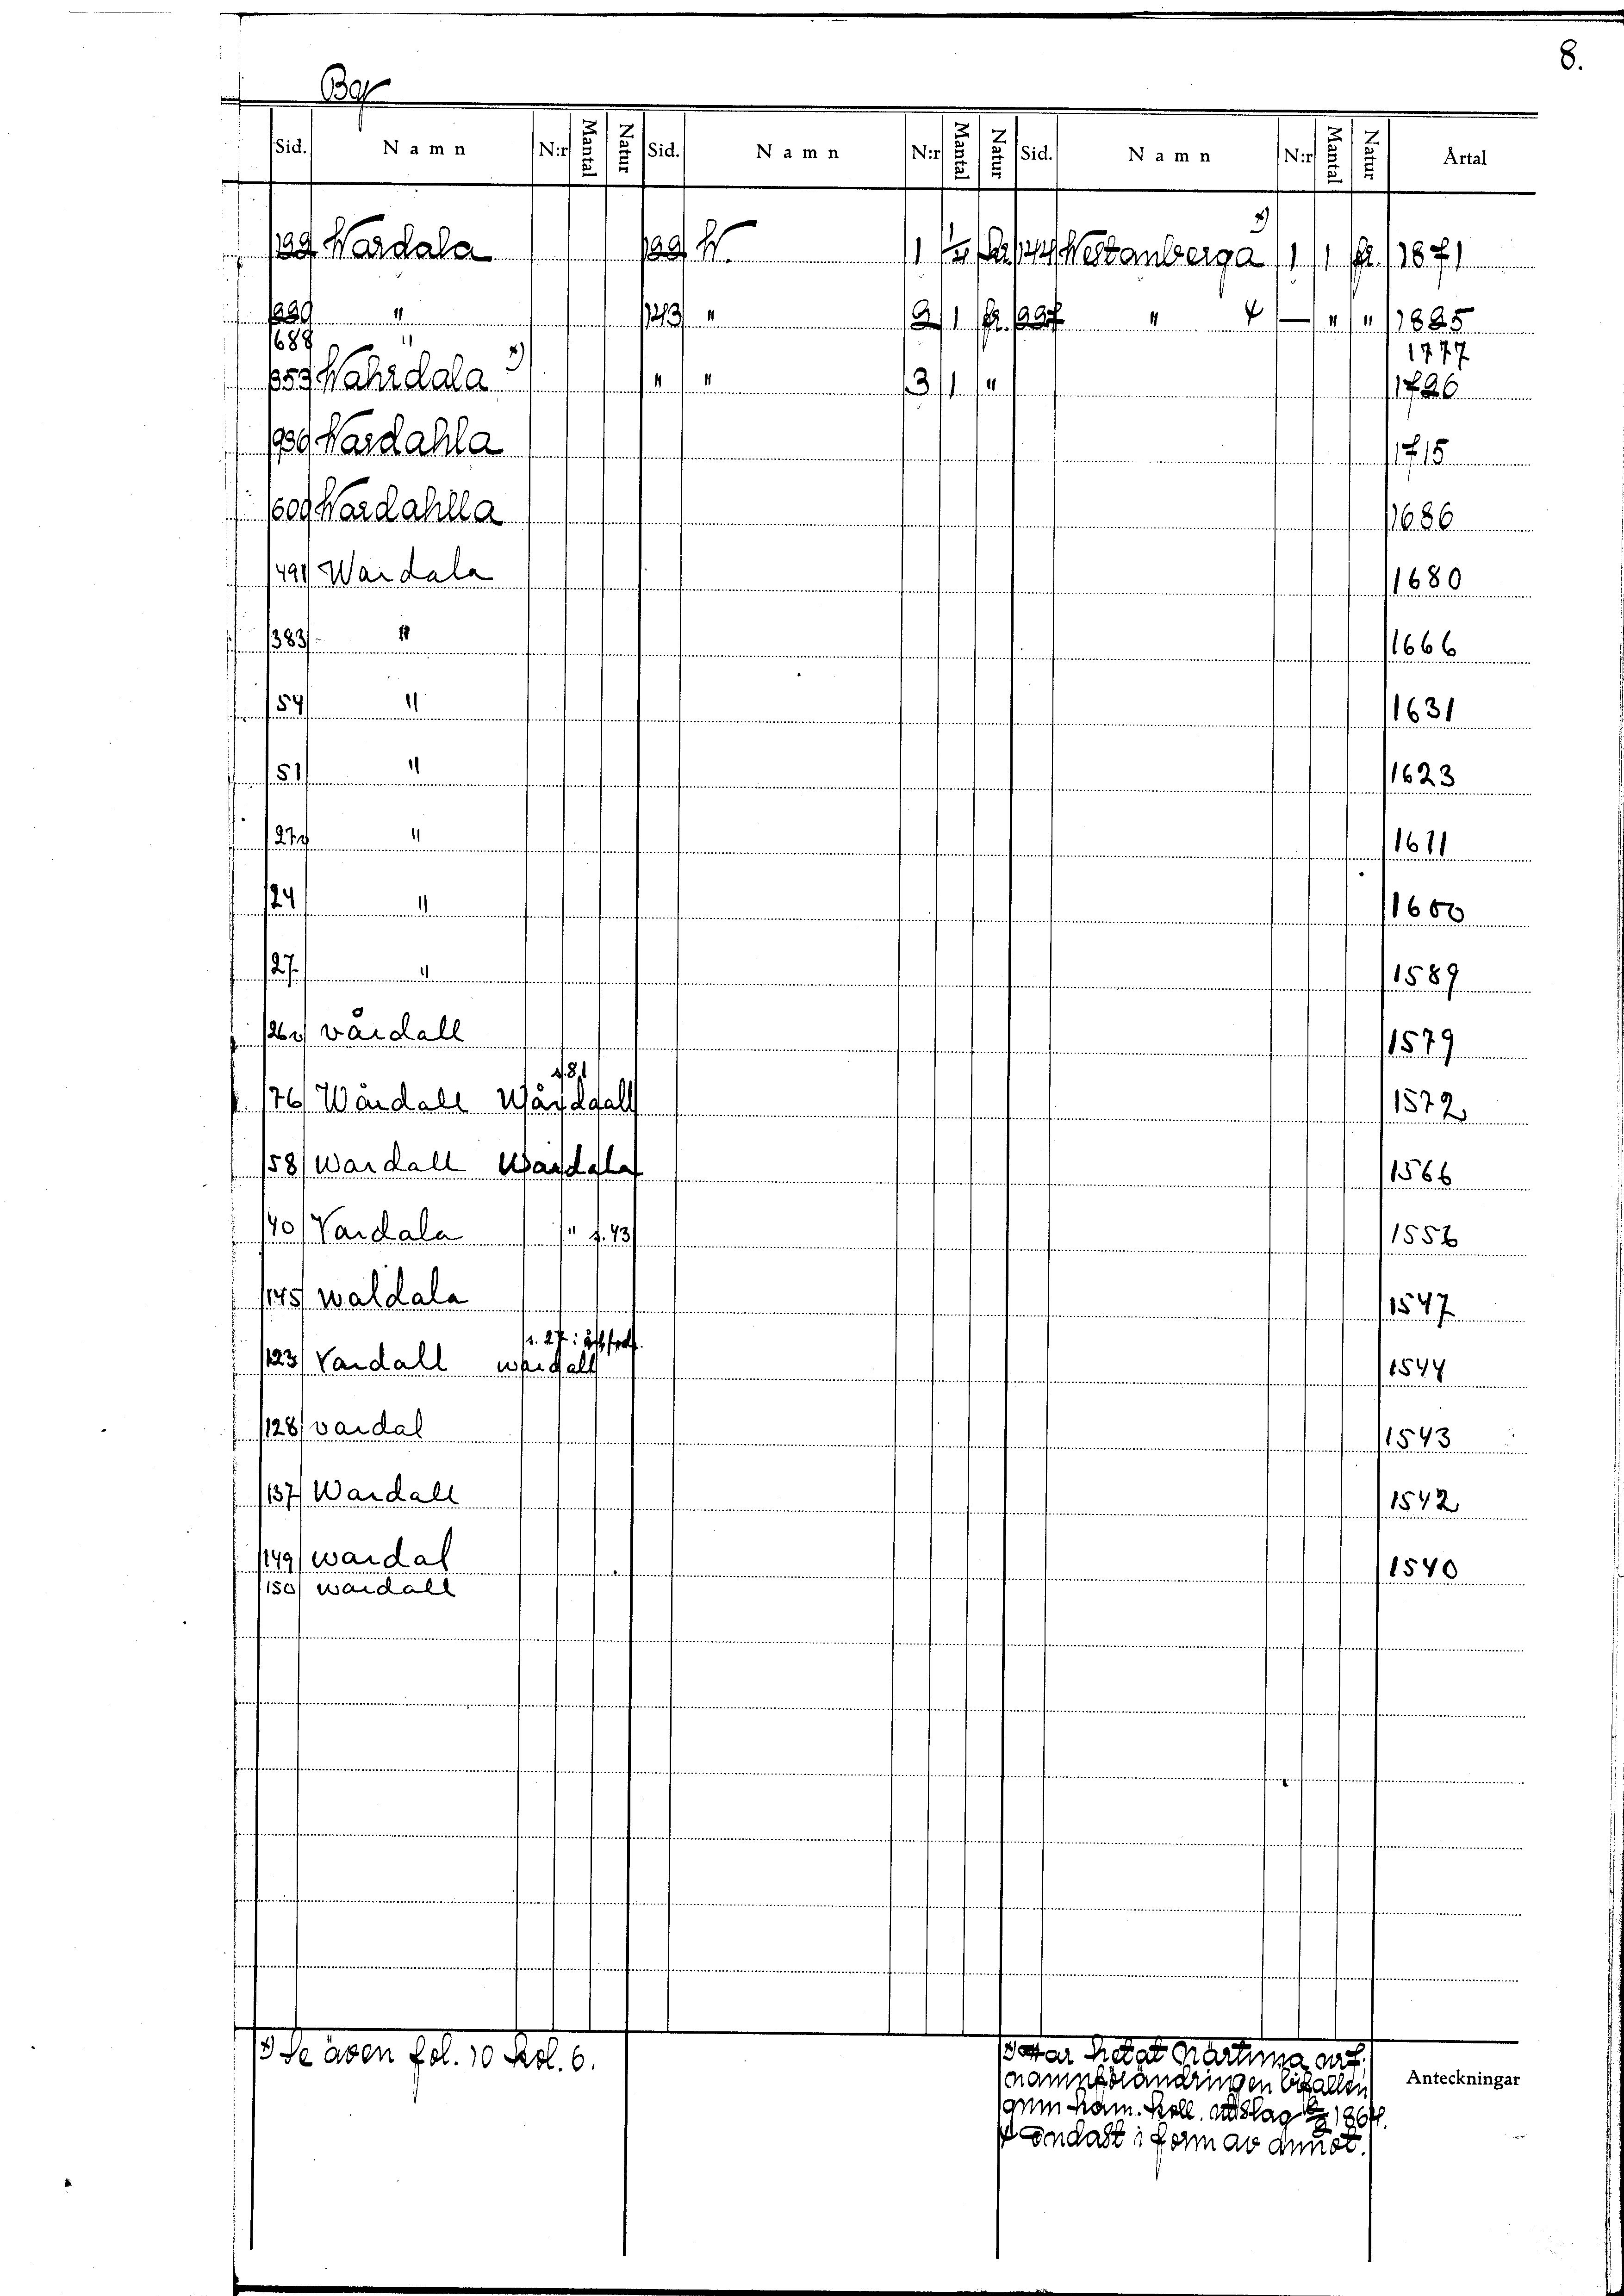 8.
By
Sid. Namn N:r Mantal Natur Sid. Namn N:r Mantal Natur Sid. Namn N:r Mantal Natur Årtal
199 Wardala 199 W. 1 1/4 144 Westanberga x) 1 1 fr. 1871
" 143 " 2 1 fr. 227 " — " " 1825
688 " 1777
353 Wahrdala x) " " 3 1 " 1726
Wardahla 1715
600 Wardahlla 1686
491 Wardala 1680
383 " 1666
54 " 1631
51 " 1623
27v " 1611
24 " 1600
27 " 1589
26v vårdall 1579
s.81
76 Wårdall Wårdaall 1572
58 Wardall Wardala 1566
40 Vardala " s.43 1556
145 waldala 1547
s. 27:
123 Vardall wardall 1544
128 vardal 1543
137 Wardall 1542
149 wardal 1540
150 wardall
x) Se även fol. 10 kol. 6.
x) Har hetat Närtuna nr 7.
namnförändringen bifallen
gnm Kam. Koll. utslag 1864.
endast i form av annot.
Anteckningar